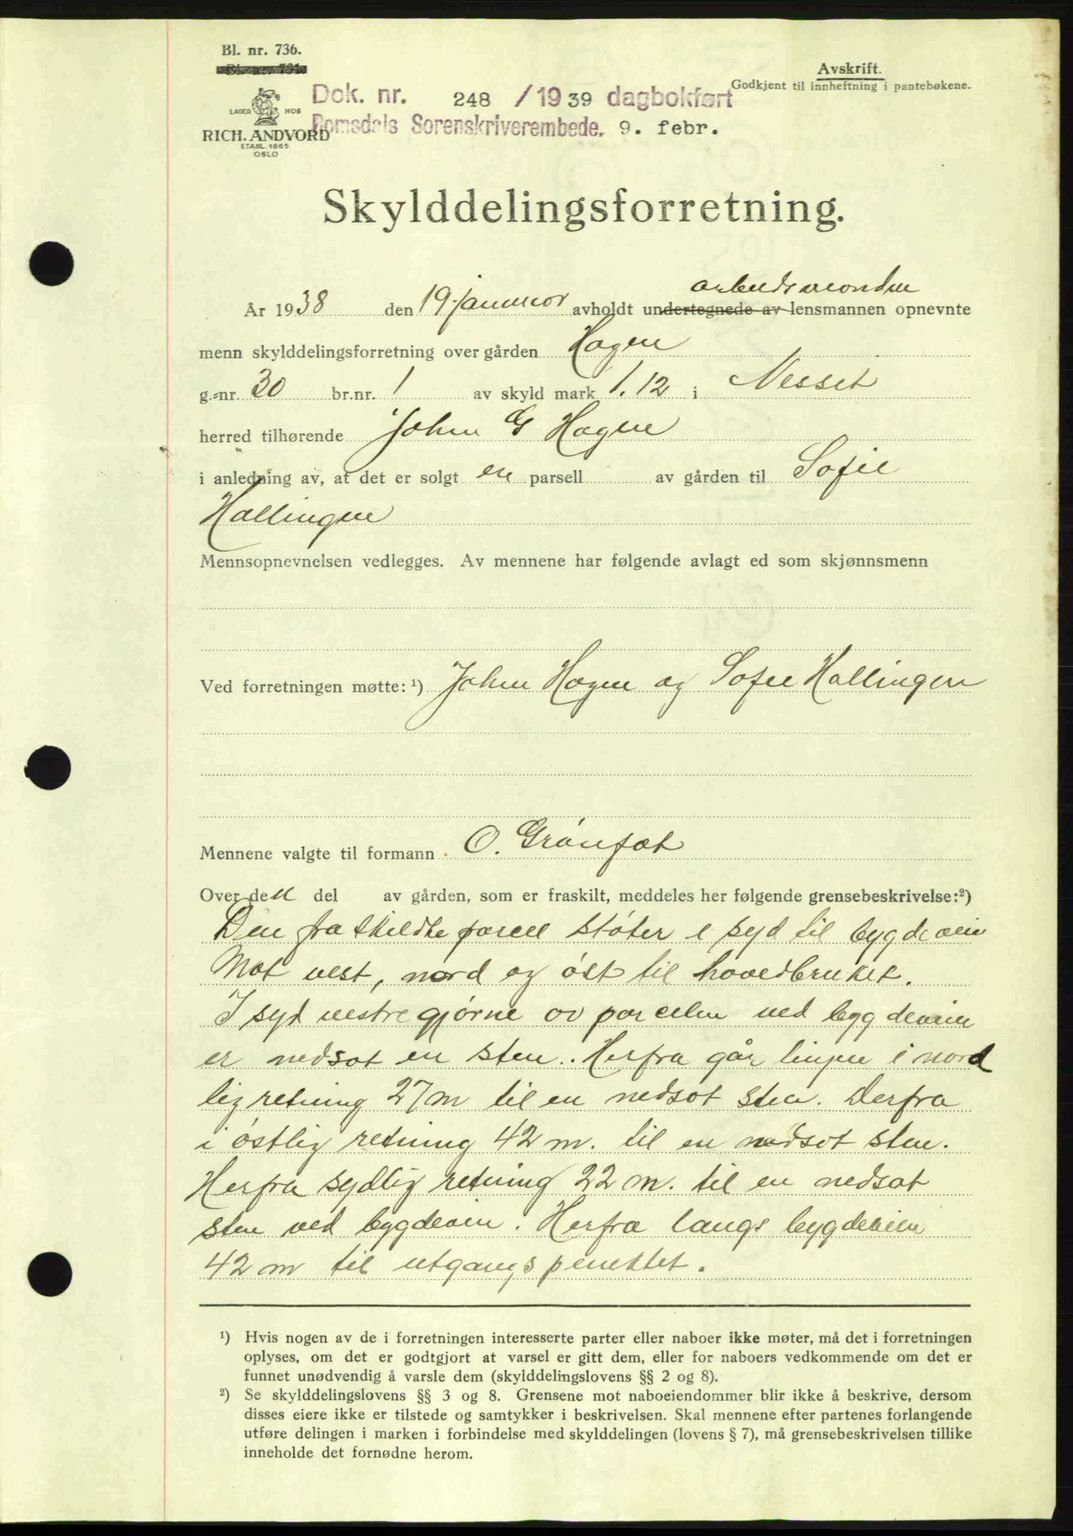 Bl. nr. 736.
Avskrift.
Godkjent til innheftning i pantebøkene.
Dok. nr. 248 / 19 39 dagbokført
Romsdals Sorenskriverembede. 9. febr.
LAGER HOS
RICH. ANDVORD
ETABL. 1865
OSLO
Skylddelingsforretning.
arbeidsmonden
År 1938 den 19. januar avholdt undertegnede av lensmannen opnevnte
menn skylddelingsforretning over gården Hagen
g.-nr. 30 br.nr. 1 av skyld mark 1.12 i Nesset
herred tilhørende John G Hagen
i anledning av, at det er solgt en parsell av gården til Sofie
Hallingen
Mennsopnevnelsen vedlegges. Av mennene har følgende avlagt ed som skjønnsmenn
Ved forretningen møtte: ¹) John Hagen og Sofie Hallingen
Mennene valgte til formann O. Grønset
Over den del av gården, som er fraskilt, meddeles her følgende grensebeskrivelse:²)
Den fraskildte parcel støter i syd til bygdeveien
Mot vest, nord og øst til hovedbruket.
I syd vestre gjørne av parcelen ved bygdeveien
er nedsat en sten. Herfra går linjen i nord
lig retning 27 m til en nedsat sten. Derfra
i østlig retning 42 m. til en nedsat sten.
Herfra sydlig retning 22 m. til en nedsat
sten ved bygdeveien. Herfra langs bygdeveien
42 m til utgangspunktet.
¹) Hvis nogen av de i forretningen interesserte parter eller naboer ikke møter, må det i forretningen
oplyses, om det er godtgjort at varsel er gitt dem, eller for naboers vedkommende om det er
funnet unødvendig å varsle dem (skylddelingslovens §§ 2 og 8).
²) Se skylddelingslovens §§ 3 og 8. Grensene mot naboeiendommer blir ikke å beskrive, dersom
disses eiere ikke er tilstede og samtykker i beskrivelsen. Skal mennene efter partenes forlangende
utføre delingen i marken i forbindelse med skylddelingen (lovens § 7), må grensebeskrivelsen tillike
inneholde det fornødne herom.